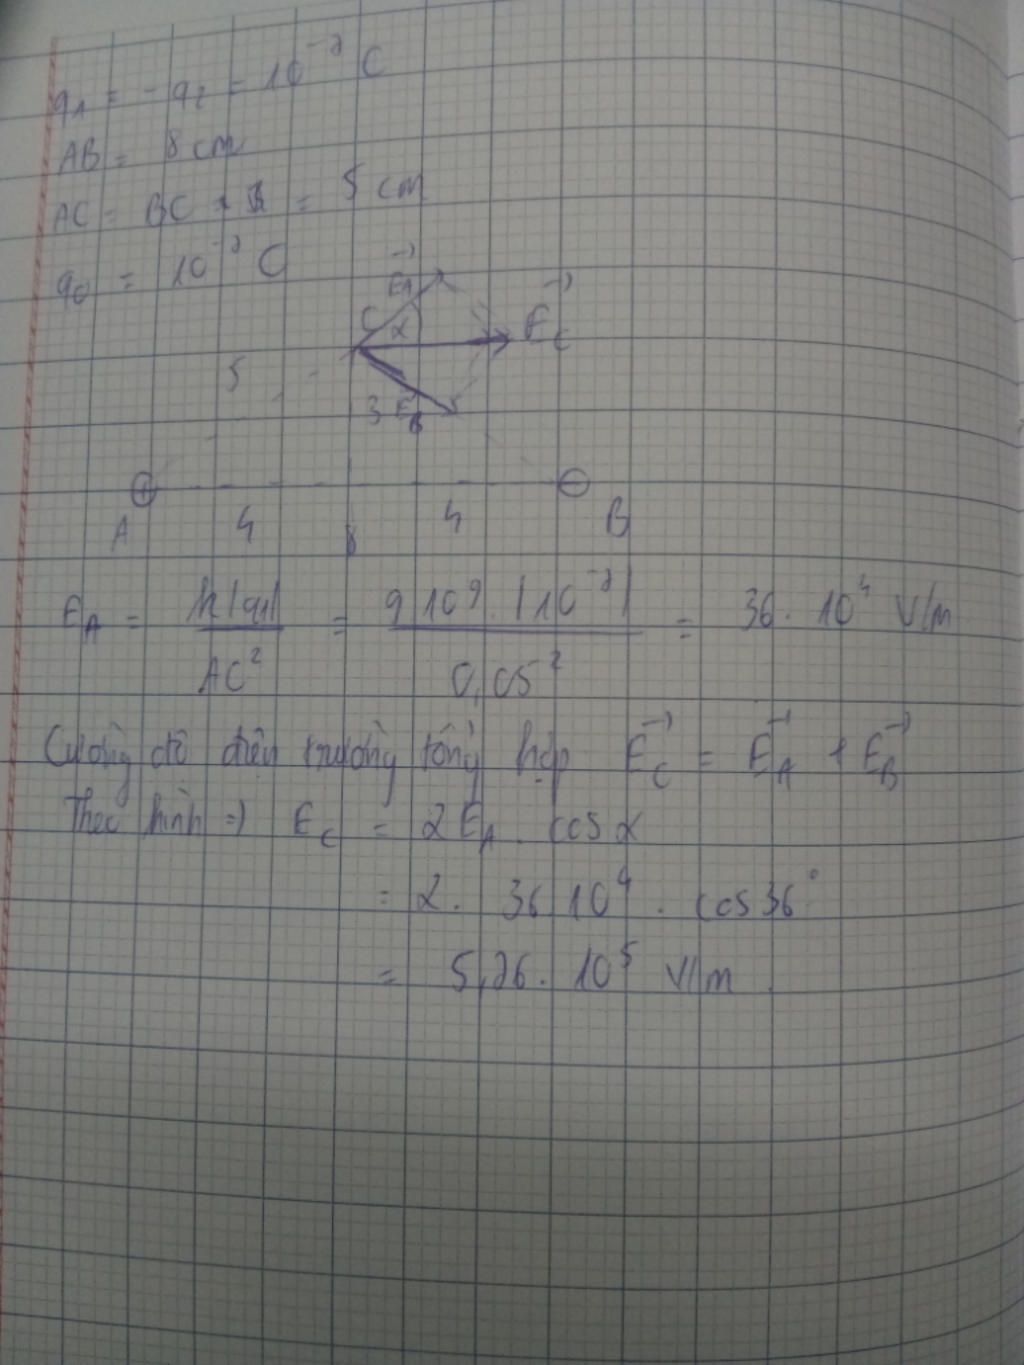 q1 = - q2 = 10^-7 C
AB = 8 cm
AC = BC = 5 cm
q0 = 10^-7 C
E_A→
C α E_C→
5
3 E_B
⊕ ⊖
A 4 8 4 B
E_A = k|q1| / AC² = 9.10⁹.|10^-7| / 0,05² = 36.10⁴ V/m
Cường độ điện trường tổng hợp E_C→ = E_A→ + E_B→
Theo hình => E_C = 2E_A . cosα
= 2. 36 10⁴ . cos36°
= 5,76. 10⁵ V/m